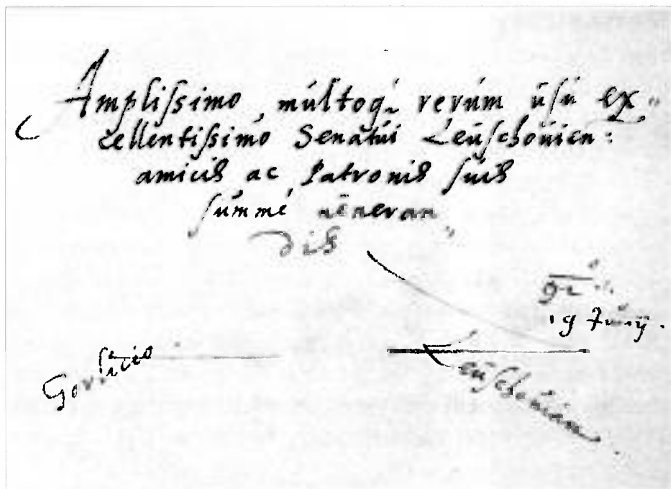 Amplissimo, multoq; rerum usu ex-
cellentissimo Senatui Leuschouien:
amicis ac Patronis suis
summè ueneran-
dis
Leuschouiam